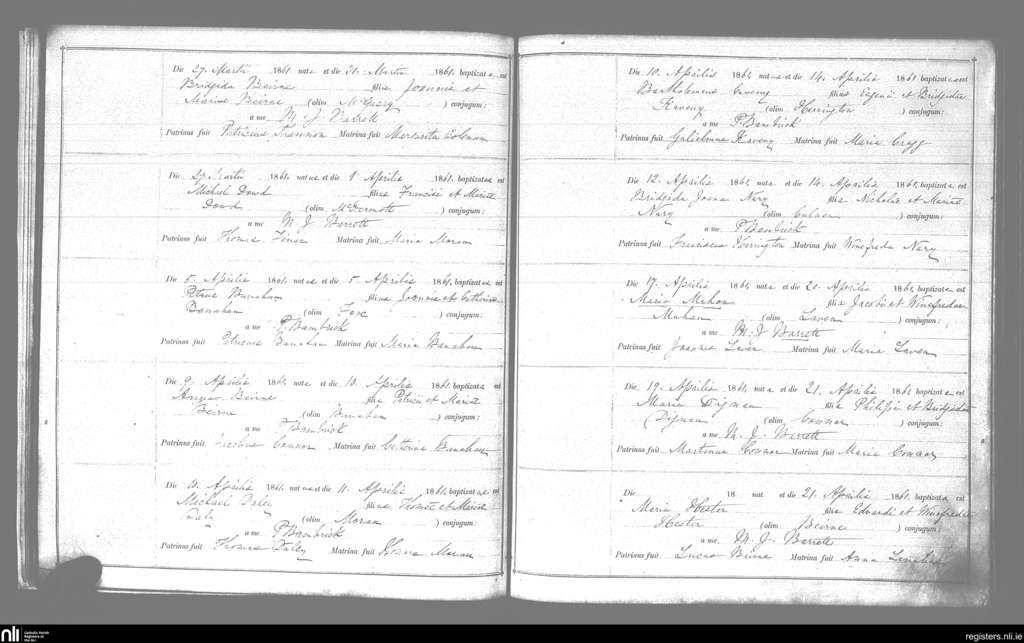 Die 27. Martii 1861. nat a et die 31. Martii 1861, baptizat a est
Bridgida Beirne filia Joannis et
Mariae Beirne (olim McGarry) conjugum:
a me M. J. Barrett
Patrinus fuit Patricius Matrina fuit Margarita
Die 27. Martii 1861. nat us et die 1 Aprilis 1861. baptizat us est
Michael Dowd filius Francisci et Mariae
Dowd (olim McDermott) conjugum:
a me M. J. Barrett
Patrinus fuit Thomas Matrina fuit Maria Moran
Die 5. Aprilis 1861. nat us et die 5. Aprilis 1861, baptizat us est
Petrus Banahan filius Joannis et Catherinae
Banahan (olim Foxe) conjugum:
a me P Bambrick
Patrinus fuit Banahan Matrina fuit Maria Banahan
Die 9. Aprilis 1861. nat a et die 10. Aprilis 1861. baptizat a est
Anna Beirne filia Patricii et Mariae
Beirne (olim Banahan) conjugum:
a me P Bambrick
Patrinus fuit Jacobus Connor Matrina fuit Catherina Banahan
Die 10. Aprilis 1861. nat us et die 11. Aprilis 1861. baptizat us est
Michael Daley filius Thomae et Mariae
Daly (olim Moran) conjugum:
a me P Bambrick
Patrinus fuit Thomas Daley Matrina fuit Moran
Die 10. Aprilis 1861, nat us et die 14. Aprilis 1861 baptizat us est
Bartholomeus filius Eugenii et Bridgidae
Kaveny (olim Herrington) conjugum:
a me P. Bambrick
Patrinus fuit Gulielmus Kaveny Matrina fuit Maria Cregg
Die 12. Aprilis 1861, nat a et die 14. Aprilis 1861, baptizat a est
Bridgida Joana Nary filia Nicholai et Mariae
Nary (olim) conjugum:
a me P Bambrick
Patrinus fuit Franciscus Matrina fuit Winefreda Nary
Die 17. Aprilis 1861, nat a et die 20. Aprilis 1861, baptizat a est
Maria Mahon filia Jacobi et Winefredae
Mahon (olim Laven) conjugum:
a me M. J Barrett
Patrinus fuit Joannes Laven Matrina fuit Maria Laven
Die 19. Aprilis 1861, nat a et die 21. Aprilis 1861 baptizat a est
Maria Dignan filia Philippi et Bridgidae
Dignan (olim Connor) conjugum:
a me M. J. Barrett
Patrinus fuit Martinus Connor Matrina fuit Maria Connor
Die 18 nat et die 21. Aprilis 1861. baptizat a est
Maria Hester filia Eduardi et Winefredae
Hester (olim Beirne) conjugum:
a me M. J. Barrett
Patrinus fuit Lucas Beirne Matrina fuit Anna
nli Catholic Parish
Registers at
the NLI
registers.nli.ie